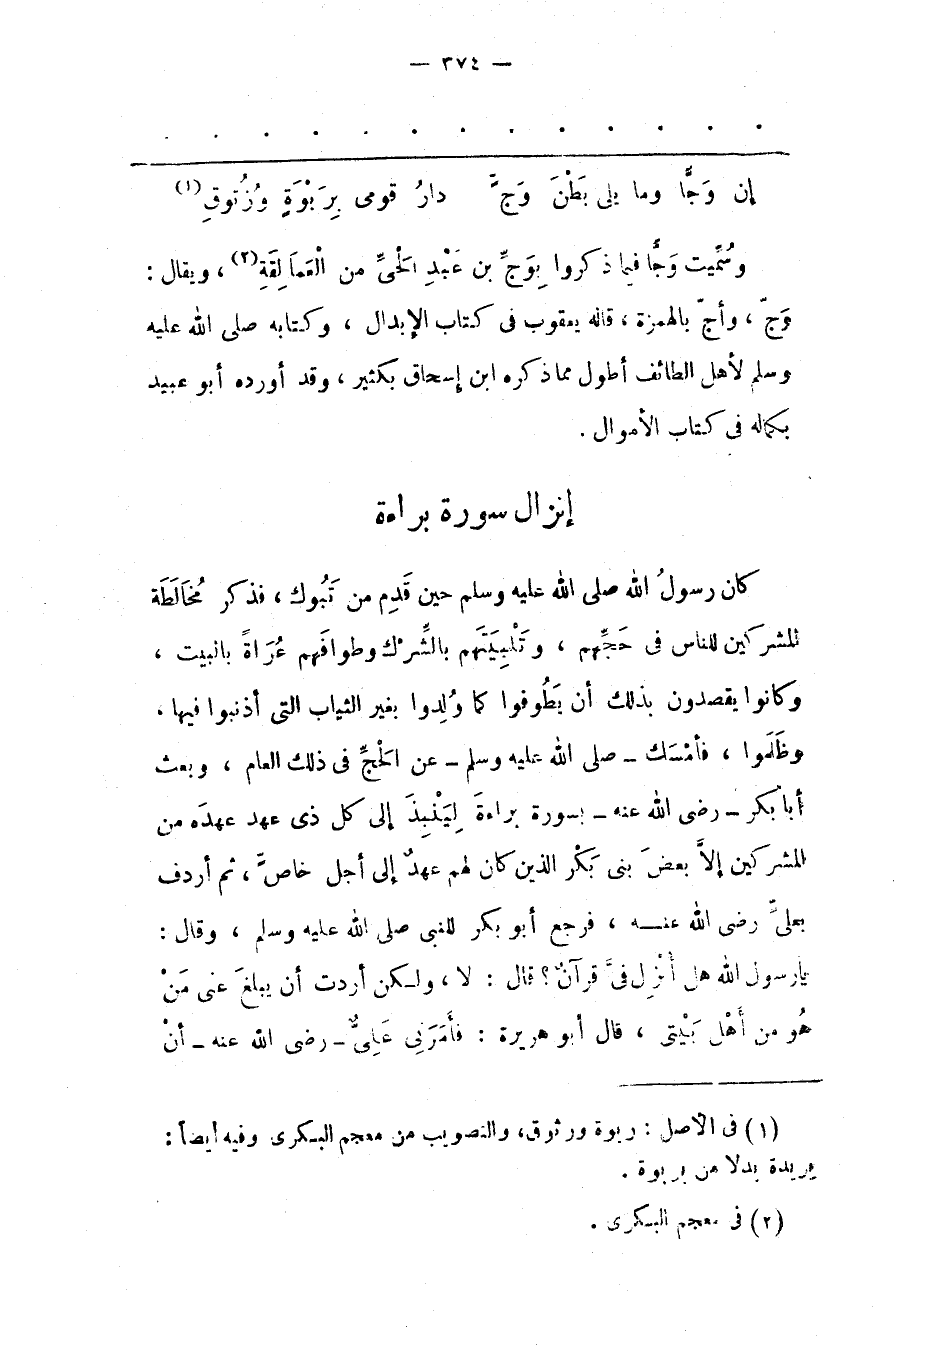 — ٣٧٤ —
. . . . . . . . . . . . .
إن وَجًّا وما يلى بَطْنَ وَجٍّ دارُ قومى بِرَبْوَةٍ وزُتُوقِ(١)
وسُمِّيت وَجًّا فيما ذكروا بِوَجِّ بن عَبْدِ الْحَىِّ من الْعَمَالِقَةِ(٢) ، ويقال :
وَجّ ، وأجّ بالهمزة ، قاله يعقوب فى كتاب الإبدال ، وكتابه صلى الله عليه
وسلم لأهل الطائف أطول مما ذكره ابن إسحاق بكثير ، وقد أورده أبو عبيد
بكماله فى كتاب الأموال .
إنزال سورة براءة
كان رسولُ الله صلى الله عليه وسلم حين قَدِم من تَبُوك ، فذكر مُخَالَطَة
المشركين للناس فى حَجِّهم ، وتَلْبِيَتَهم بالشِّرْك وطوافَهم عُرَاةً بالبيت ،
وكانوا يقصدون بذلك أن يَطُوفوا كما وُلِدوا بغير الثياب التى أذنبوا فيها .
وظَلَموا ، فأمْسَك – صلى الله عليه وسلم – عن الْحَجِّ فى ذلك العام ، وبعث
أبا بكر – رضى الله عنه – بسورة براءةَ لِيَنْبِذَ إلى كل ذى عهد عهدَه من
المشركين إلاَّ بعضَ بنى بَكْر الذين كان لهم عهدٌ إلى أجل خاصٍّ ، ثم أردف
بعلىٍّ رضى الله عنـه ، فرجع أبو بكر للنبى صلى الله عليه وسلم ، وقال :
يا رسول الله هل أُنْزِل فىَّ قرآنٌ ؟ قال : لا ، ولكن أردت أن يبلغَ عنى مَنْ
هُو من أَهْلِ بَيْتِى ، قال أبو هريرة : فأَمَرَنِى عَلِىٌّ – رضى الله عنه – أنْ
(١) فى الأصل : ربوة ورثوق ، والتصويب من معجم البكرى وفيه أيضاً :
بريدة بدلا من بربوة .
(٢) فى معجم البكرى .